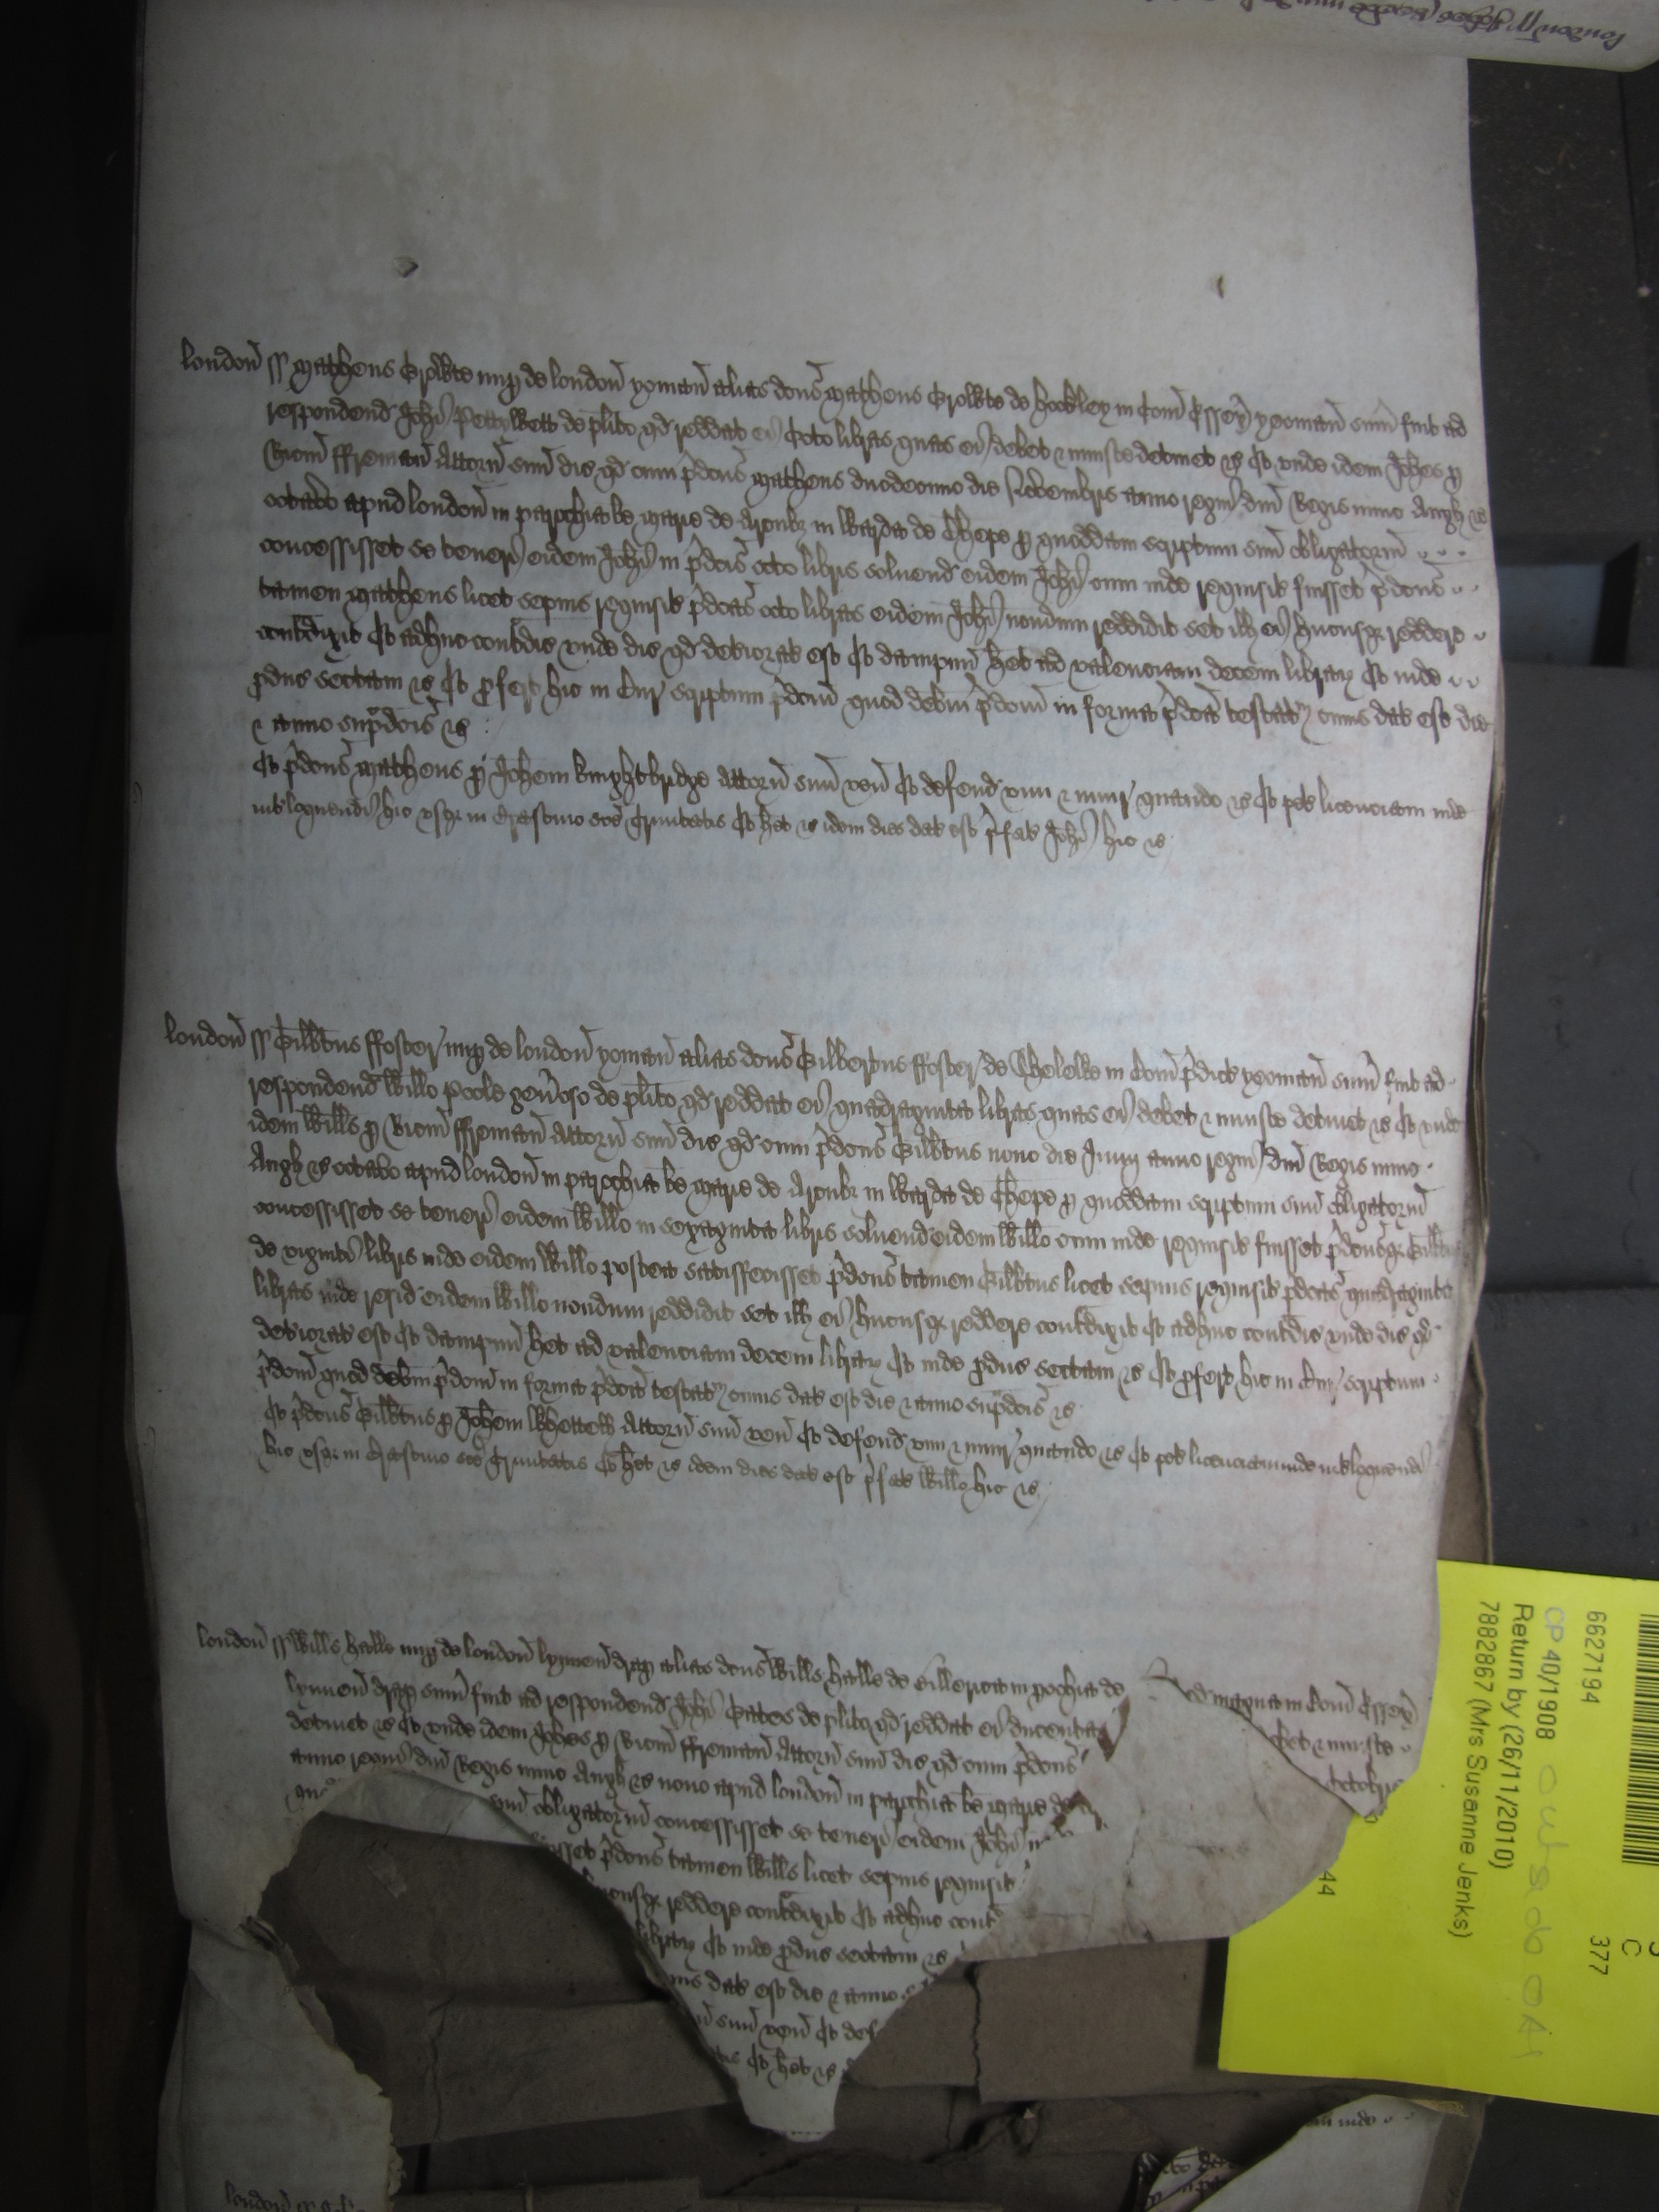 london ss Matheus Crokte nup de london yoman alias dcus Matheus Crokte de hockley in Com Essex yeoman sum fuit ad
respondend Johi Pettyllett de plito qd reddat ei Octo libras quas ei debet & iniuste detinet &c Et unde idem Johes p
Ricm ffreman Attorn suu dic qd cum pdcus Matheus duodecimo die Novembris anno regni dni Regis nunc Angl &c
octavo apud london in parochia be Marie de Arcubz in Warda de Chepe p quoddam scriptum suu obligatoriu
concessisset se teneri eidem Johi in pdcis octo libris solvend eidem Johi cum inde requisit fuisset pdcus
tamen Matheus licet sepius requisit pdcas octo libras eidem Johi nondum reddidit set ill ei hucusqz reddere
contradixit Et adhuc contradic unde dic qd deteriorat est Et dampnu het ad valenciam decem librar Et inde
pduc sectam &c Et pfert hic in Cur scriptum pdcm quod debm pdcm in forma pdca testat cuius dat est die
& anno supradcis &c
Et pdcus Matheus p Johem knyghtbridge Attorn suu ven Et defend vim & iniur quando &c Et pet licenciam inde
intloquendi hic usqz in Crastino sce Trinitatis Et het &c idem dies dat est pfat Johi hic &c
london ss Gilbtus ffoster nup de london yoman alias dcus Gilbertus ffoster de in Com pdict yeoman sum fuit ad
respondend Willo Poole genoso de plito qd reddat ei quadraginta libras quas ei debet & iniuste detinet &c Et unde
idem Wills p Ricm ffreman Attorn suu dic qd cum pdcus Gilbtus nono die Junii anno regni dni Regis nunc
Angl &c octavo apud london in parochia be Marie de Arcubz in Warda de Chepe p quoddam scriptum suu obligatoriu
concessisset se teneri eidem Willo in sexaginta libris solvend eidem Willo cum inde requisit fuisset pdcusqz Gilbtus
de viginti libris inde eidem Willo postea satisfecisset pdcus tamen Gilbtus licet sepius requisit pdcas quadraginta
libras inde resid eidem Willo nondum reddidit set ill ei hucusqz reddere contradixit Et adhuc contradic unde dic qd
deteriorat est Et dampnu het ad valenciam decem librar Et inde pduc sectam &c Et pfert hic in Cur scriptum
pdcm quod debm pdcm in forma pdca testat cuius dat est die & anno supradcis &c
Et pdcus Gilbtus p Johem Attorn suu ven Et defend vim & iniur quando &c Et pet licenciam inde intloquendi
hic usqz in Crastino sce Trinitatis Et het &c idem dies dat est pfat Willo hic &c
london ss Wills halle nup de london lynnen drap alias dcus Wills halle de Billerica in pochia de magna in Com Essex
lynnen drap sum fuit ad respondend Johi Bates de plito qd reddat ei ducentas debet & iniuste
detinet &c Et unde idem Johes p Ricm ffreman Attorn suu dic qd cum pdcus Octobris
anno regni dni Regis nunc Angl &c nono apud london in parochia be Marie de
suu obligatoriu concessisset se teneri eidem Johi in
pdcus tamen Wills licet sepius requisit
hucusqz reddere contradixit Et adhuc cont
librar Et inde pduc sectam &c
dat est die & anno
suu ven Et def
Et het &c
6627194
377
CP 40/1908
Return by (26/11/2010)
7882867 (Mrs Susanne Jenks)
44